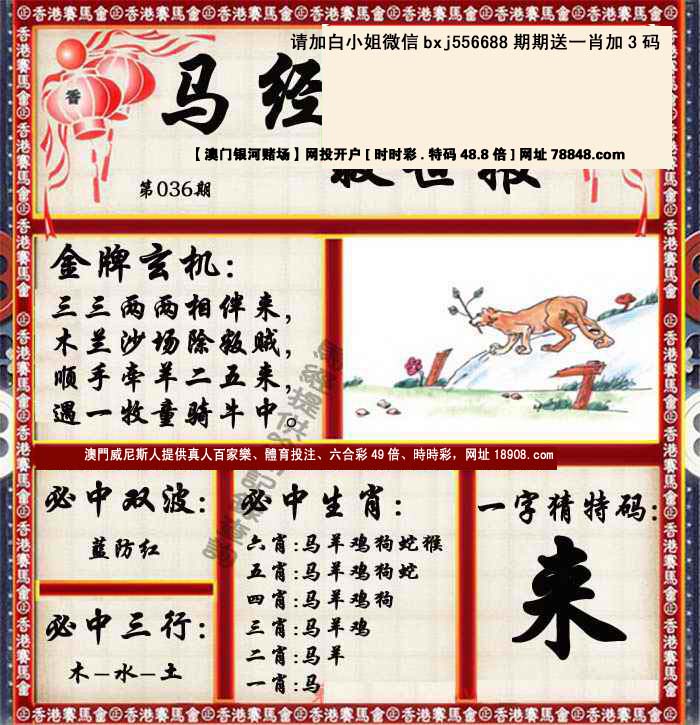 请加白小姐微信 bxj556688 期期送一肖加 3 码
香
马经
【 澳门银河赌场 】网投开户 [ 时时彩 . 特码 48.8 倍 ] 网址 78848.com
救世报
第036期
金牌玄机：
三三两两相伴来，
木兰沙场除叛贼，
顺手牵羊二五来，
遇一牧童骑牛中。
澳門威尼斯人提供真人百家樂、體育投注、六合彩 49 倍、時時彩，网址 18908. com
必中双波：
蓝防红
必中三行：
木－水－土
必中生肖：
六肖：马羊鸡狗蛇猴
五肖：马羊鸡狗蛇
四肖：马羊鸡狗
三肖：马羊鸡
二肖：马羊
一肖：马
一字猜特码：
来
香港賽馬會